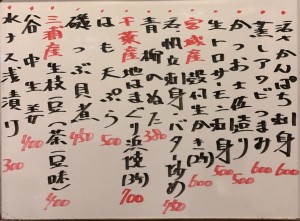 かんぱち刺 600
蒸しアワビつまみ 600
かつお土佐造り 500
生トロサーモン刺身 500
宮城産 殻付生かき(1ヶ) 600
帆立刺身・バター炒め 450
青柳のぬた 380
千葉産 地はまぐり浜焼(1ヶ) 700
はも天ぷら 500
磯つぶ貝煮 450
三浦産 生枝豆(茶豆味) 400
谷中生姜 400
水ナス浅漬り 300